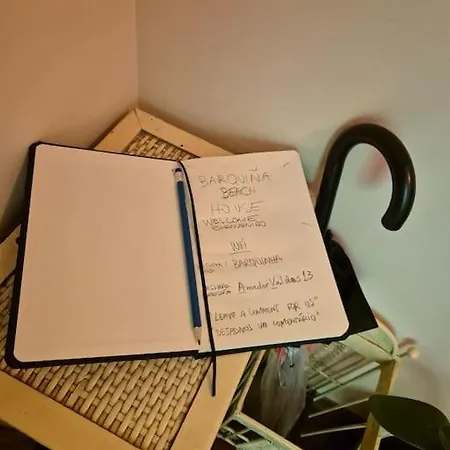 BARQUIÑA
BEACH
HOUSE
WELCOME
WIFI
BARQUINHA
AmadorValdes13
"LEAVE A COMMENT FOR US"
DEJADNOS UN COMENTÁRIO"